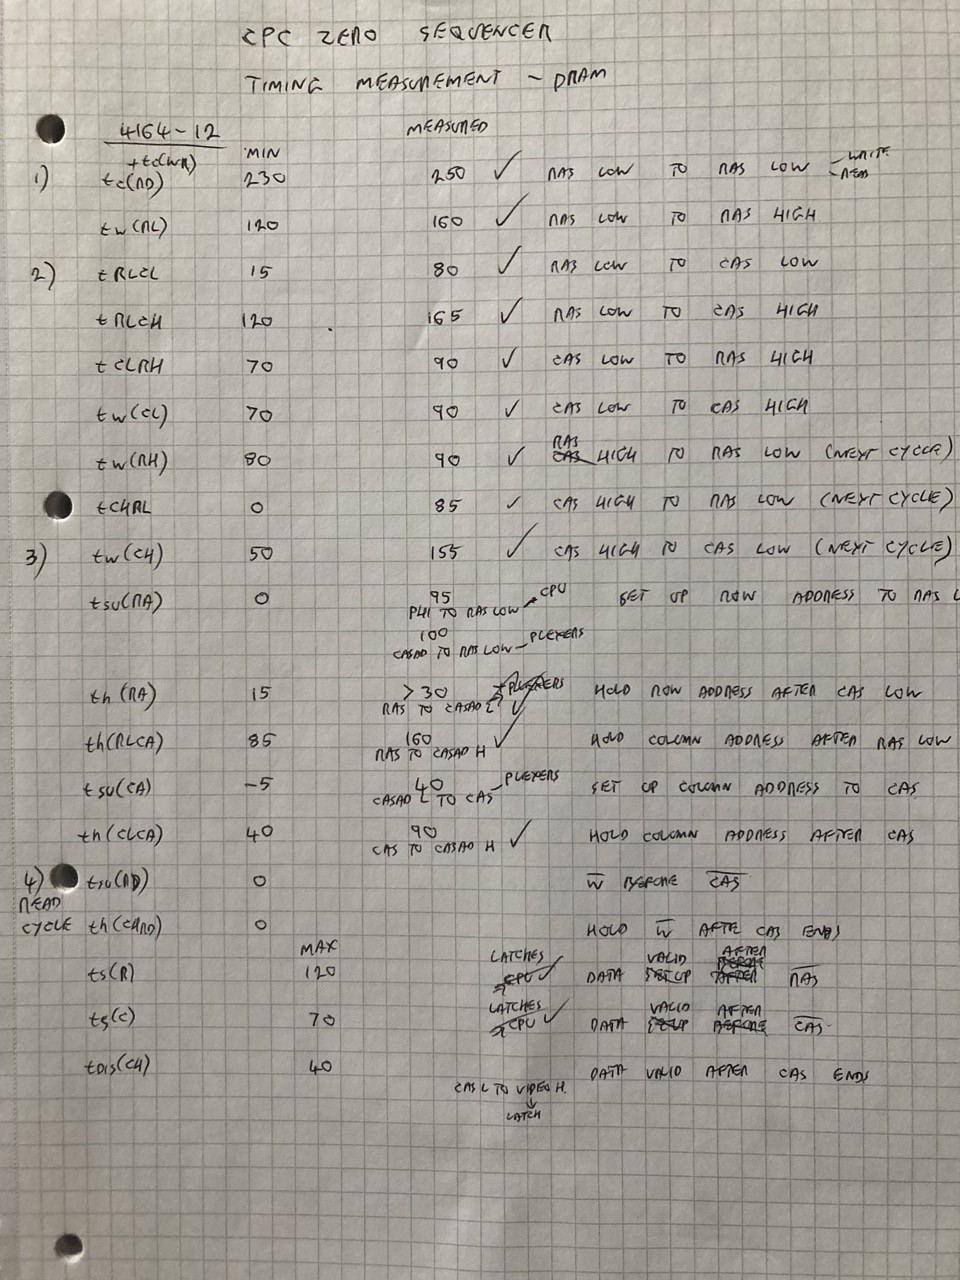 CPC ZERO SEQUENCER
TIMING MEASUREMENT - DRAM
4164-12 MEASURED
+tc(WR) MIN
1) tc(RD) 230 250 ✓ RAS LOW TO RAS LOW - WRITE - READ
tw(RL) 120 160 ✓ RAS LOW TO RAS HIGH
2) tRLCL 15 80 ✓ RAS LOW TO CAS LOW
tRLCH 120 165 ✓ RAS LOW TO CAS HIGH
tCLRH 70 90 ✓ CAS LOW TO RAS HIGH
tw(CL) 70 90 ✓ CAS LOW TO CAS HIGH
tw(RH) 80 90 ✓ RAS HIGH TO RAS LOW (NEXT CYCLE)
tCHRL 0 85 ✓ CAS HIGH TO RAS LOW (NEXT CYCLE)
3) tw(CH) 50 155 ✓ CAS HIGH TO CAS LOW (NEXT CYCLE)
tsu(RA) 0 95 SET UP ROW ADDRESS TO RAS L
PHI TO RAS LOW - CPU
100
CASAD TO RAS LOW - PLEXERS
th(RA) 15 >30 PLEXERS HOLD ROW ADDRESS AFTER CAS LOW
RAS TO CASAD L ✓
th(RLCA) 85 160 ✓ HOLD COLUMN ADDRESS AFTER RAS LOW
RAS TO CASAD H
tsu(CA) -5 40 - PLEXERS SET UP COLUMN ADDRESS TO CAS
CASAD L TO CAS
th(CLCA) 40 90 ✓ HOLD COLUMN ADDRESS AFTER CAS
CAS TO CASAD H
4) tsu(RD) 0 W BEFORE CAS
READ
CYCLE th(CHRD) 0 HOLD W AFTE CAS ENDS
MAX
ts(R) 120 LATCHES CPU ✓ DATA VALID AFTER RAS
ts(C) 70 LATCHES CPU ✓ DATA VALID AFTER CAS
tDIS(CH) 40 DATA VALID AFTER CAS ENDS
CAS L TO VIDEO H.
↓
LATCH